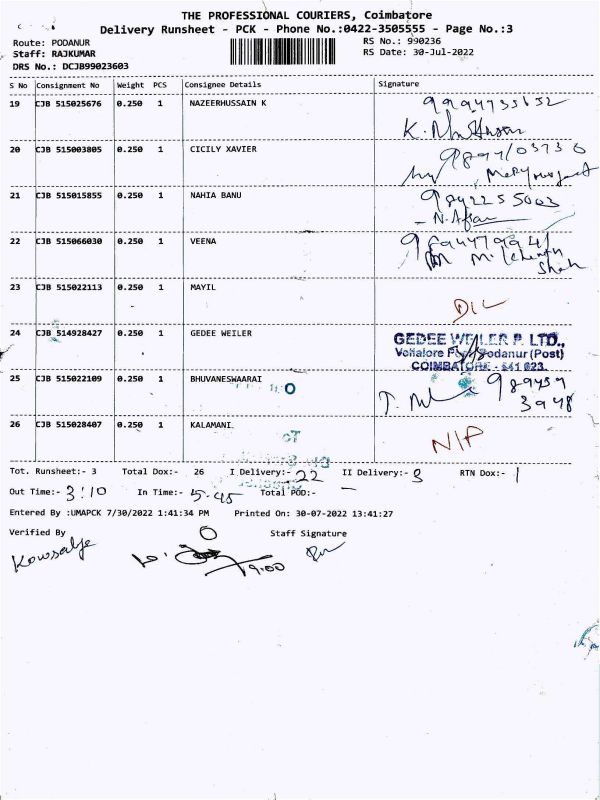 THE PROFESSIONAL COURIERS, Coimbatore
Delivery Runsheet - PCK - Phone No.:0422-3505555 - Page No.:3
Route: PODANUR
RS No.: 990236
Staff: RAJKUMAR
RS Date: 30-Jul-2022
DRS No.: DCJB99023603
S No Consignment No Weight PCS Consignee Details Signature
19 CJB 515025676 0.250 1 NAZEERHUSSAIN K
20 CJB 515003805 0.250 1 CICILY XAVIER
21 CJB 515015855 0.250 1 NAHIA BANU
N. Afsar
22 CJB 515066030 0.250 1 VEENA
23 CJB 515022113 0.250 1 MAYIL
D/L
24 CJB 514928427 0.250 1 GEDEE WEILER GEDEE WEILER P. LTD.,
Vellalore Podanur (Post)
COIMBATORE - 641 023.
25 CJB 515022109 0.250 1 BHUVANESWAARAI
26 CJB 515028407 0.250 1 KALAMANI N/P
To
Tot. Runsheet:- 3 Total Dox:- 26 I Delivery:- 22 II Delivery:- 3 RTN Dox:- 1
Out Time:- 3:10 In Time:- 5-45 Total POD:- -
Entered By :UMAPCK 7/30/2022 1:41:34 PM Printed On: 30-07-2022 13:41:27
Verified By Staff Signature
Kowsalya
9:00